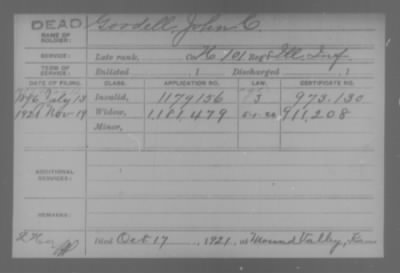 DEAD
NAME OF SOLDIER: Goodell, John C.
SERVICE: Late rank, Co. H, 101 Reg't Ill. Inf.
TERM OF SERVICE: Enlisted , 1 Discharged , 1
DATE OF FILING. CLASS. APPLICATION NO. LAW. CERTIFICATE NO.
July 13 Invalid, 1179156 3 973.130
1921 Nov 19 Widow, 1181,479 911,208
Minor,
ADDITIONAL SERVICES:
REMARKS:
Died Oct 17, 1921, at Mound Valley, Kans